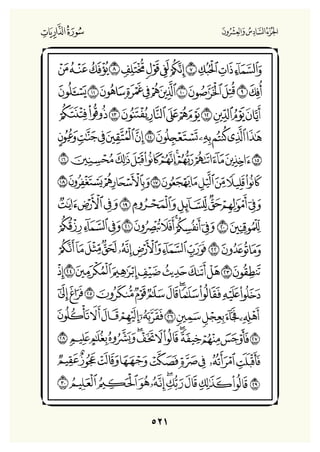 الجُزْءُ السَّادِسُ وَالعِشْرُونَ سُورَةُ الذَّارِيَاتِ
وَٱلسَّمَآءِ ذَاتِ ٱلْحُبُكِ ٧ إِنَّكُمْ لَفِى قَوْلٍ مُّخْتَلِفٍ ٨ يُؤْفَكُ عَنْهُ مَنْ
أُفِكَ ٩ قُتِلَ ٱلْخَرَّٰصُونَ ١٠ ٱلَّذِينَ هُمْ فِى غَمْرَةٍ سَاهُونَ ١١ يَسْـَٔلُونَ
أَيَّانَ يَوْمُ ٱلدِّينِ ١٢ يَوْمَ هُمْ عَلَى ٱلنَّارِ يُفْتَنُونَ ١٣ ذُوقُوا۟ فِتْنَتَكُمْ
هَٰذَا ٱلَّذِى كُنتُم بِهِۦ تَسْتَعْجِلُونَ ١٤ إِنَّ ٱلْمُتَّقِينَ فِى جَنَّٰتٍ وَعُيُونٍ
١٥ ءَاخِذِينَ مَآ ءَاتَىٰهُمْ رَبُّهُمْ ۚ إِنَّهُمْ كَانُوا۟ قَبْلَ ذَٰلِكَ مُحْسِنِينَ ١٦
كَانُوا۟ قَلِيلًا مِّنَ ٱلَّيْلِ مَا يَهْجَعُونَ ١٧ وَبِٱلْأَسْحَارِ هُمْ يَسْتَغْفِرُونَ ١٨
وَفِىٓ أَمْوَٰلِهِمْ حَقٌّ لِّلسَّآئِلِ وَٱلْمَحْرُومِ ١٩ وَفِى ٱلْأَرْضِ ءَايَٰتٌ
لِّلْمُوقِنِينَ ٢٠ وَفِىٓ أَنفُسِكُمْ ۚ أَفَلَا تُبْصِرُونَ ٢١ وَفِى ٱلسَّمَآءِ رِزْقُكُمْ
وَمَا تُوعَدُونَ ٢٢ فَوَرَبِّ ٱلسَّمَآءِ وَٱلْأَرْضِ إِنَّهُۥ لَحَقٌّ مِّثْلَ مَآ أَنَّكُمْ
تَنطِقُونَ ٢٣ هَلْ أَتَىٰكَ حَدِيثُ ضَيْفِ إِبْرَٰهِيمَ ٱلْمُكْرَمِينَ ٢٤ إِذْ
دَخَلُوا۟ عَلَيْهِ فَقَالُوا۟ سَلَٰمًا ۖ قَالَ سَلَٰمٌ قَوْمٌ مُّنكَرُونَ ٢٥ فَرَاغَ إِلَىٰٓ
أَهْلِهِۦ فَجَآءَ بِعِجْلٍ سَمِينٍ ٢٦ فَقَرَّبَهُۥٓ إِلَيْهِمْ قَالَ أَلَا تَأْكُلُونَ
٢٧ فَأَوْجَسَ مِنْهُمْ خِيفَةً ۖ قَالُوا۟ لَا تَخَفْ ۖ وَبَشَّرُوهُ بِغُلَٰمٍ عَلِيمٍ ٢٨
فَأَقْبَلَتِ ٱمْرَأَتُهُۥ فِى صَرَّةٍ فَصَكَّتْ وَجْهَهَا وَقَالَتْ عَجُوزٌ عَقِيمٌ
٢٩ قَالُوا۟ كَذَٰلِكِ قَالَ رَبُّكِ ۖ إِنَّهُۥ هُوَ ٱلْحَكِيمُ ٱلْعَلِيمُ ٣٠
٥٢١